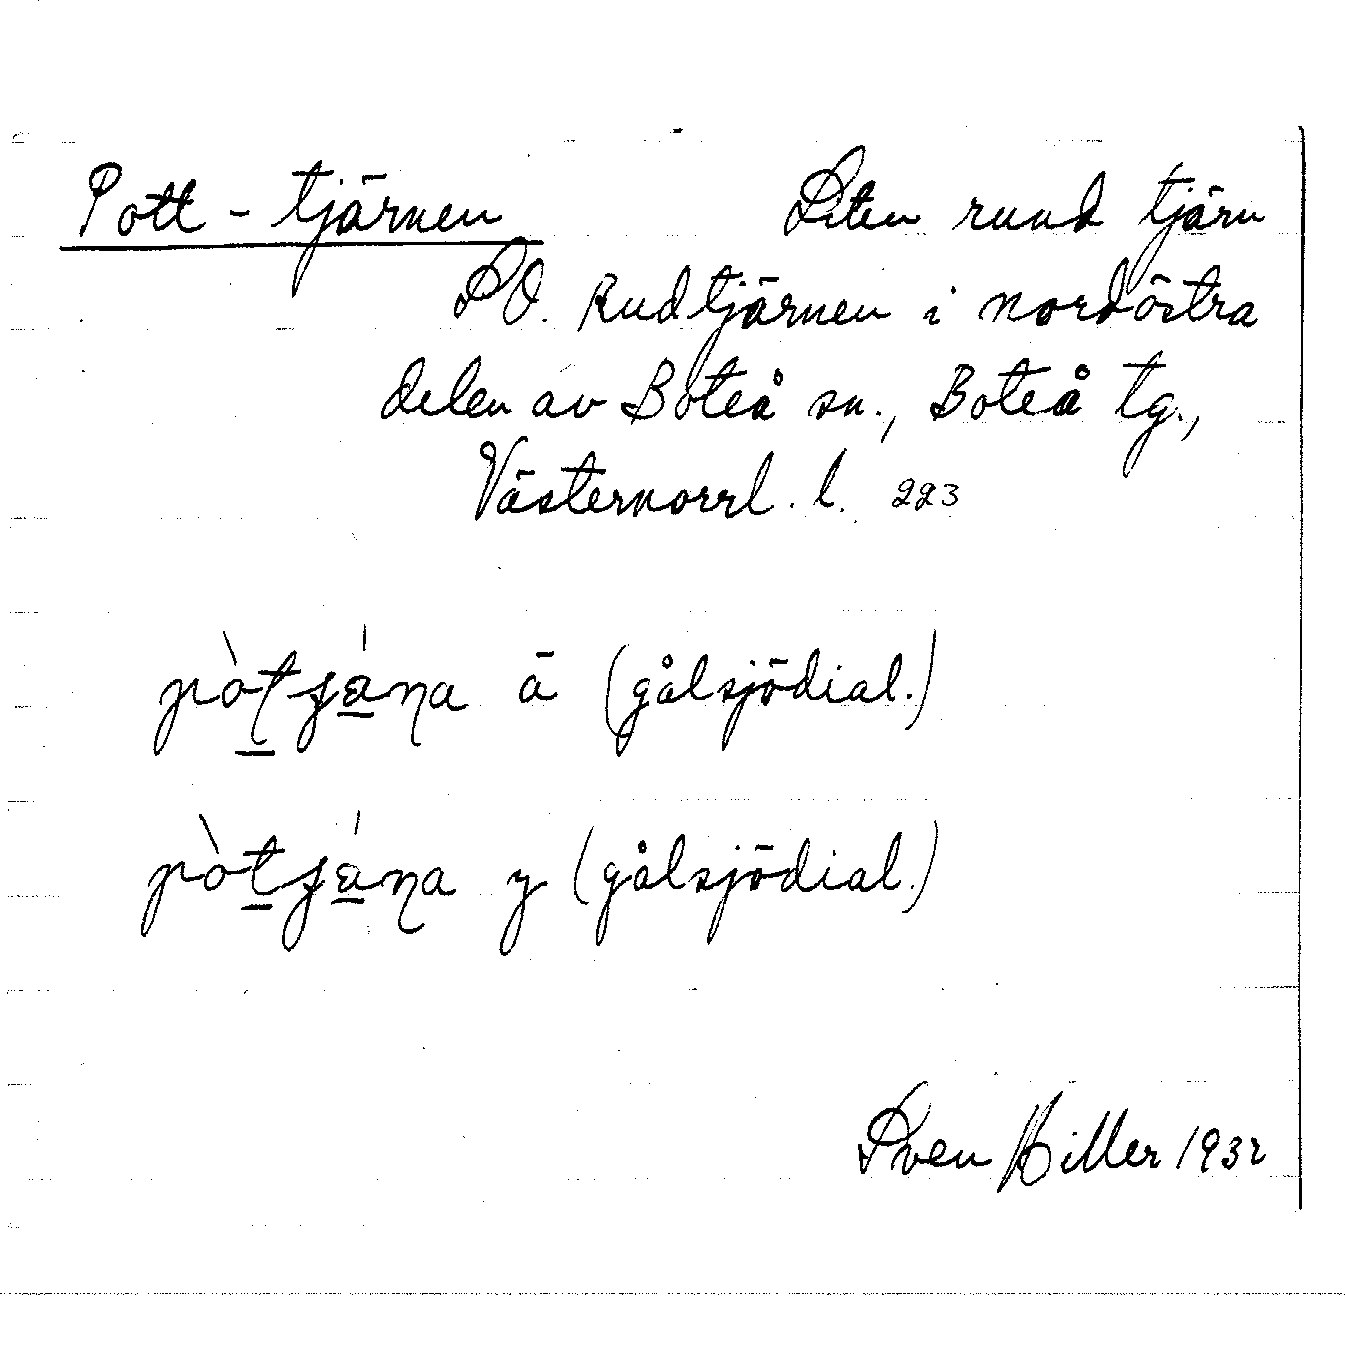 Pott-tjärnen Liten rund tjärn
SO. Rudtjärnen i nordöstra
delen av Boteå sn., Boteå tg.,
Västernorrl. l. 223
ā (gålsjödial.)
y (gålsjödial.)
Sven Hiller 1932